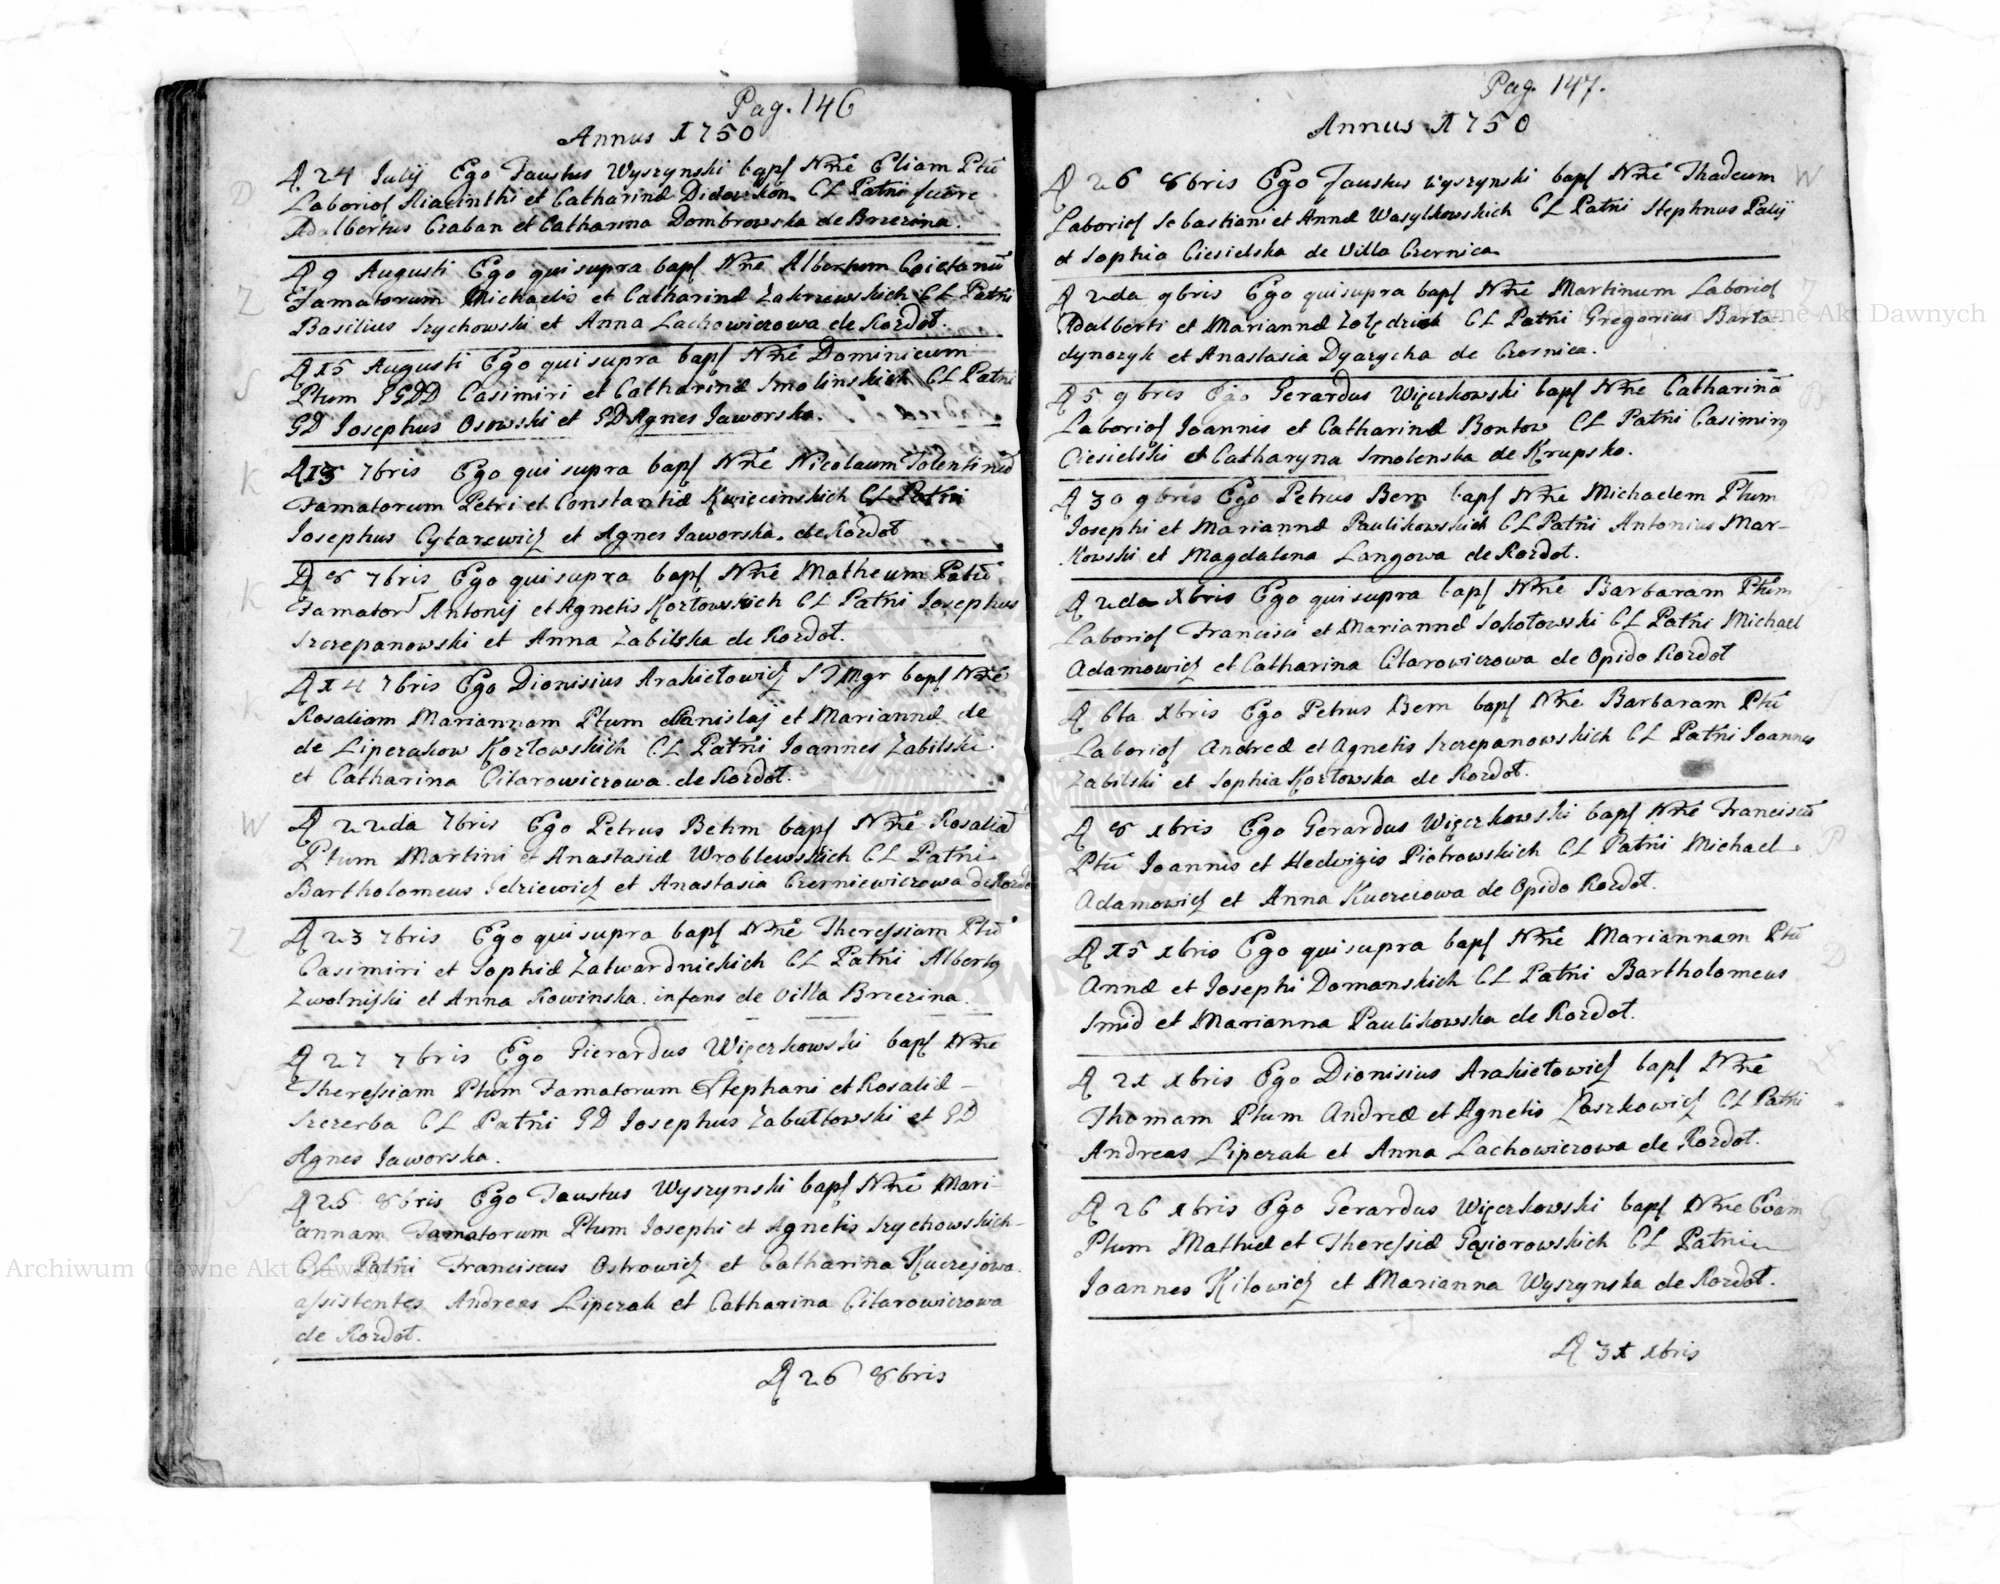 Pag. 146
Annus 1750
D 24 Julij Ego Faustus Wyszynski bapſ Nrne Eliam Ptũ
Laborioſ Hiacinthi et Catharinæ CL Patñi fuêre
Adalbertus Czaban et Catharina Dombrowska de Brzezina.
D 9 Augusti Ego qui supra bapſ Nrne Albertum Caietanũ
Z Famatorum Michaelis et Catharinæ Zakrzewskich CL Patñi
Basilius Szychowski et Anna Lachowiczowa de Rozdoł.
D 15 Augusti Ego qui supra bapſ Nrne Dominicum
S Ptum GGDD Casimiri et Catharinæ Smolinskich CL Patñi
GD Iosephus Osowski et GD Agnes Iaworska.
D 13 7bris Ego qui supra bapſ Nrne Nicolaum Tolentinũ
K Famatorum Petri et Constantiæ Kwiecinskich CL Patñi
Iosephus Cytarewicz et Agnes Iaworska. de Rozdoł
D 8 7bris Ego qui supra bapſ Nrne Matheum Patũ
K Famator Antonij et Agnetis Kozłowskich CL Patñi Iosephus
Szczepanowski et Anna Zabilska de Rozdoł.
D 14 7bris Ego Dionisius Arakiełowicz ST Mgr bapſ Nrne
K Rosaliam Mariannam Ptum Stanislaj et Mariannæ de
de Lipczakow Kozłowskich CL Patñi Ioannes Zabilski
et Catharina Citarowiczowa de Rozdoł.
W D 22da 7bris Ego Petrus Behm bapſ Nrne Rosaliã
Ptum Martini et Anastasiæ Wroblewskich CL Patñi
Bartholomeus Jdziewicz et Anastasia Czerniewiczowa de Rozdo
Z D 23 7bris Ego qui supra bapſ Nrne Theresſiam Ptũ
Casimiri et Sophiæ Zatwardnickich CL Patñi Albertq
Zwolniſki et Anna Rowinska infans de Villa Brzezina.
D 27 7bris Ego Gierardus Więczkowski bapſ Nrne
Theresſiam Ptum Famatorum Stephani et Rosaliæ
Szczerba CL Patñi GD Iosephus Zabułtowski et GD
Agnes Iaworska.
D 25 8bris Ego Faustus Wyszynski bapſ Nrne Mari
annam Famatorum Ptum Iosephi et Agnetis Szychowskich
CL Patñi Franciscus Ostrowicz et Catharina Kuczejowa
aſsistentes Andreas Lipczak et Catharina Citarowiczowa
de Rozdoł.
D 26 8bris
Pag. 147.
Annus 1750
D 26 8bris Ego Faustus Wyszynski bapſ Nrne Thadeum W
Laborioſ Sebastiani et Annæ Wasylkowskich CL Patñi Stephnus Palij
et Sophia Ciesielska de Villa Czernica
D 2da 9bris Ego qui supra bapſ Nrne Martinum Laborioſ
Adalberti et Mariannæ CL Patñi Gregorius Barta
dynczyk et Anastasia Dyazycha de Czernica.
D 5 9bris Ego Gerardus Więczkowski bapſ Nrne Catharinã B
Laborioſ Ioannis et Catharinæ Bontow CL Patñi Casimirq
Ciesielski et Catharyna Smolenska de Krupsko.
D 30 9bris Ego Petrus Bem bapſ Nrne Michaelem Ptum
Iosephi et Mariannæ Paulikowskich CL Patñi Antonius Mar-
kowski et Magdalena Langowa de Rozdoł.
D 2da Xbris Ego qui supra bapſ Nrne Barbaram Ptum
Laborioſ Francisci et Mariannæ Sokołowski CL Patñi Michael
Adamowicz et Catharina Citarowiczowa de Opido Rozdoł
D 6ta Xbris Ego Petrus Bem bapſ Nrne Barbaram Ptũ
Laborioſ Andreæ et Agnetis Szczepanowskich CL Patñi Ioannes
Zabilski et Sophia Kozłowska de Rozdoł.
D 8 Xbris Ego Gerardus Więczkowski bapſ Nrne Franciscũ
Ptũ Ioannis et Hedwigis Piotrowskich CL Patñi Michael P
Adamowicz et Anna Kuczeiowa de Opido Rozdoł.
D 15 Xbris Ego qui supra bapſ Nrne Mariannam Ptũ D
Annæ et Iosephi Domanskich CL Patñi Bartholomeus
Smid et Marianna Paulikowska de Rozdoł.
D 21 Xbris Ego Dionisius Arakiełowicz bapſ Nrne
Thomam Ptum Andreæ et Agnetis Laszkowicz CL Patñi
Andreas Lipczak et Anna Lachowiczowa de Rozdoł.
D 26 Xbris Ego Gerardus Więczkowski bapſ Nrne Evam G
Ptum Mathiæ et Theresſiæ Gąsiorowskich CL Patñi
Ioannes Kiłowicz et Marianna Wyszynska de Rozdoł.
D 31 Xbris
Archiwum Główne Akt Dawnych
Archiwum Główne Akt Dawnych